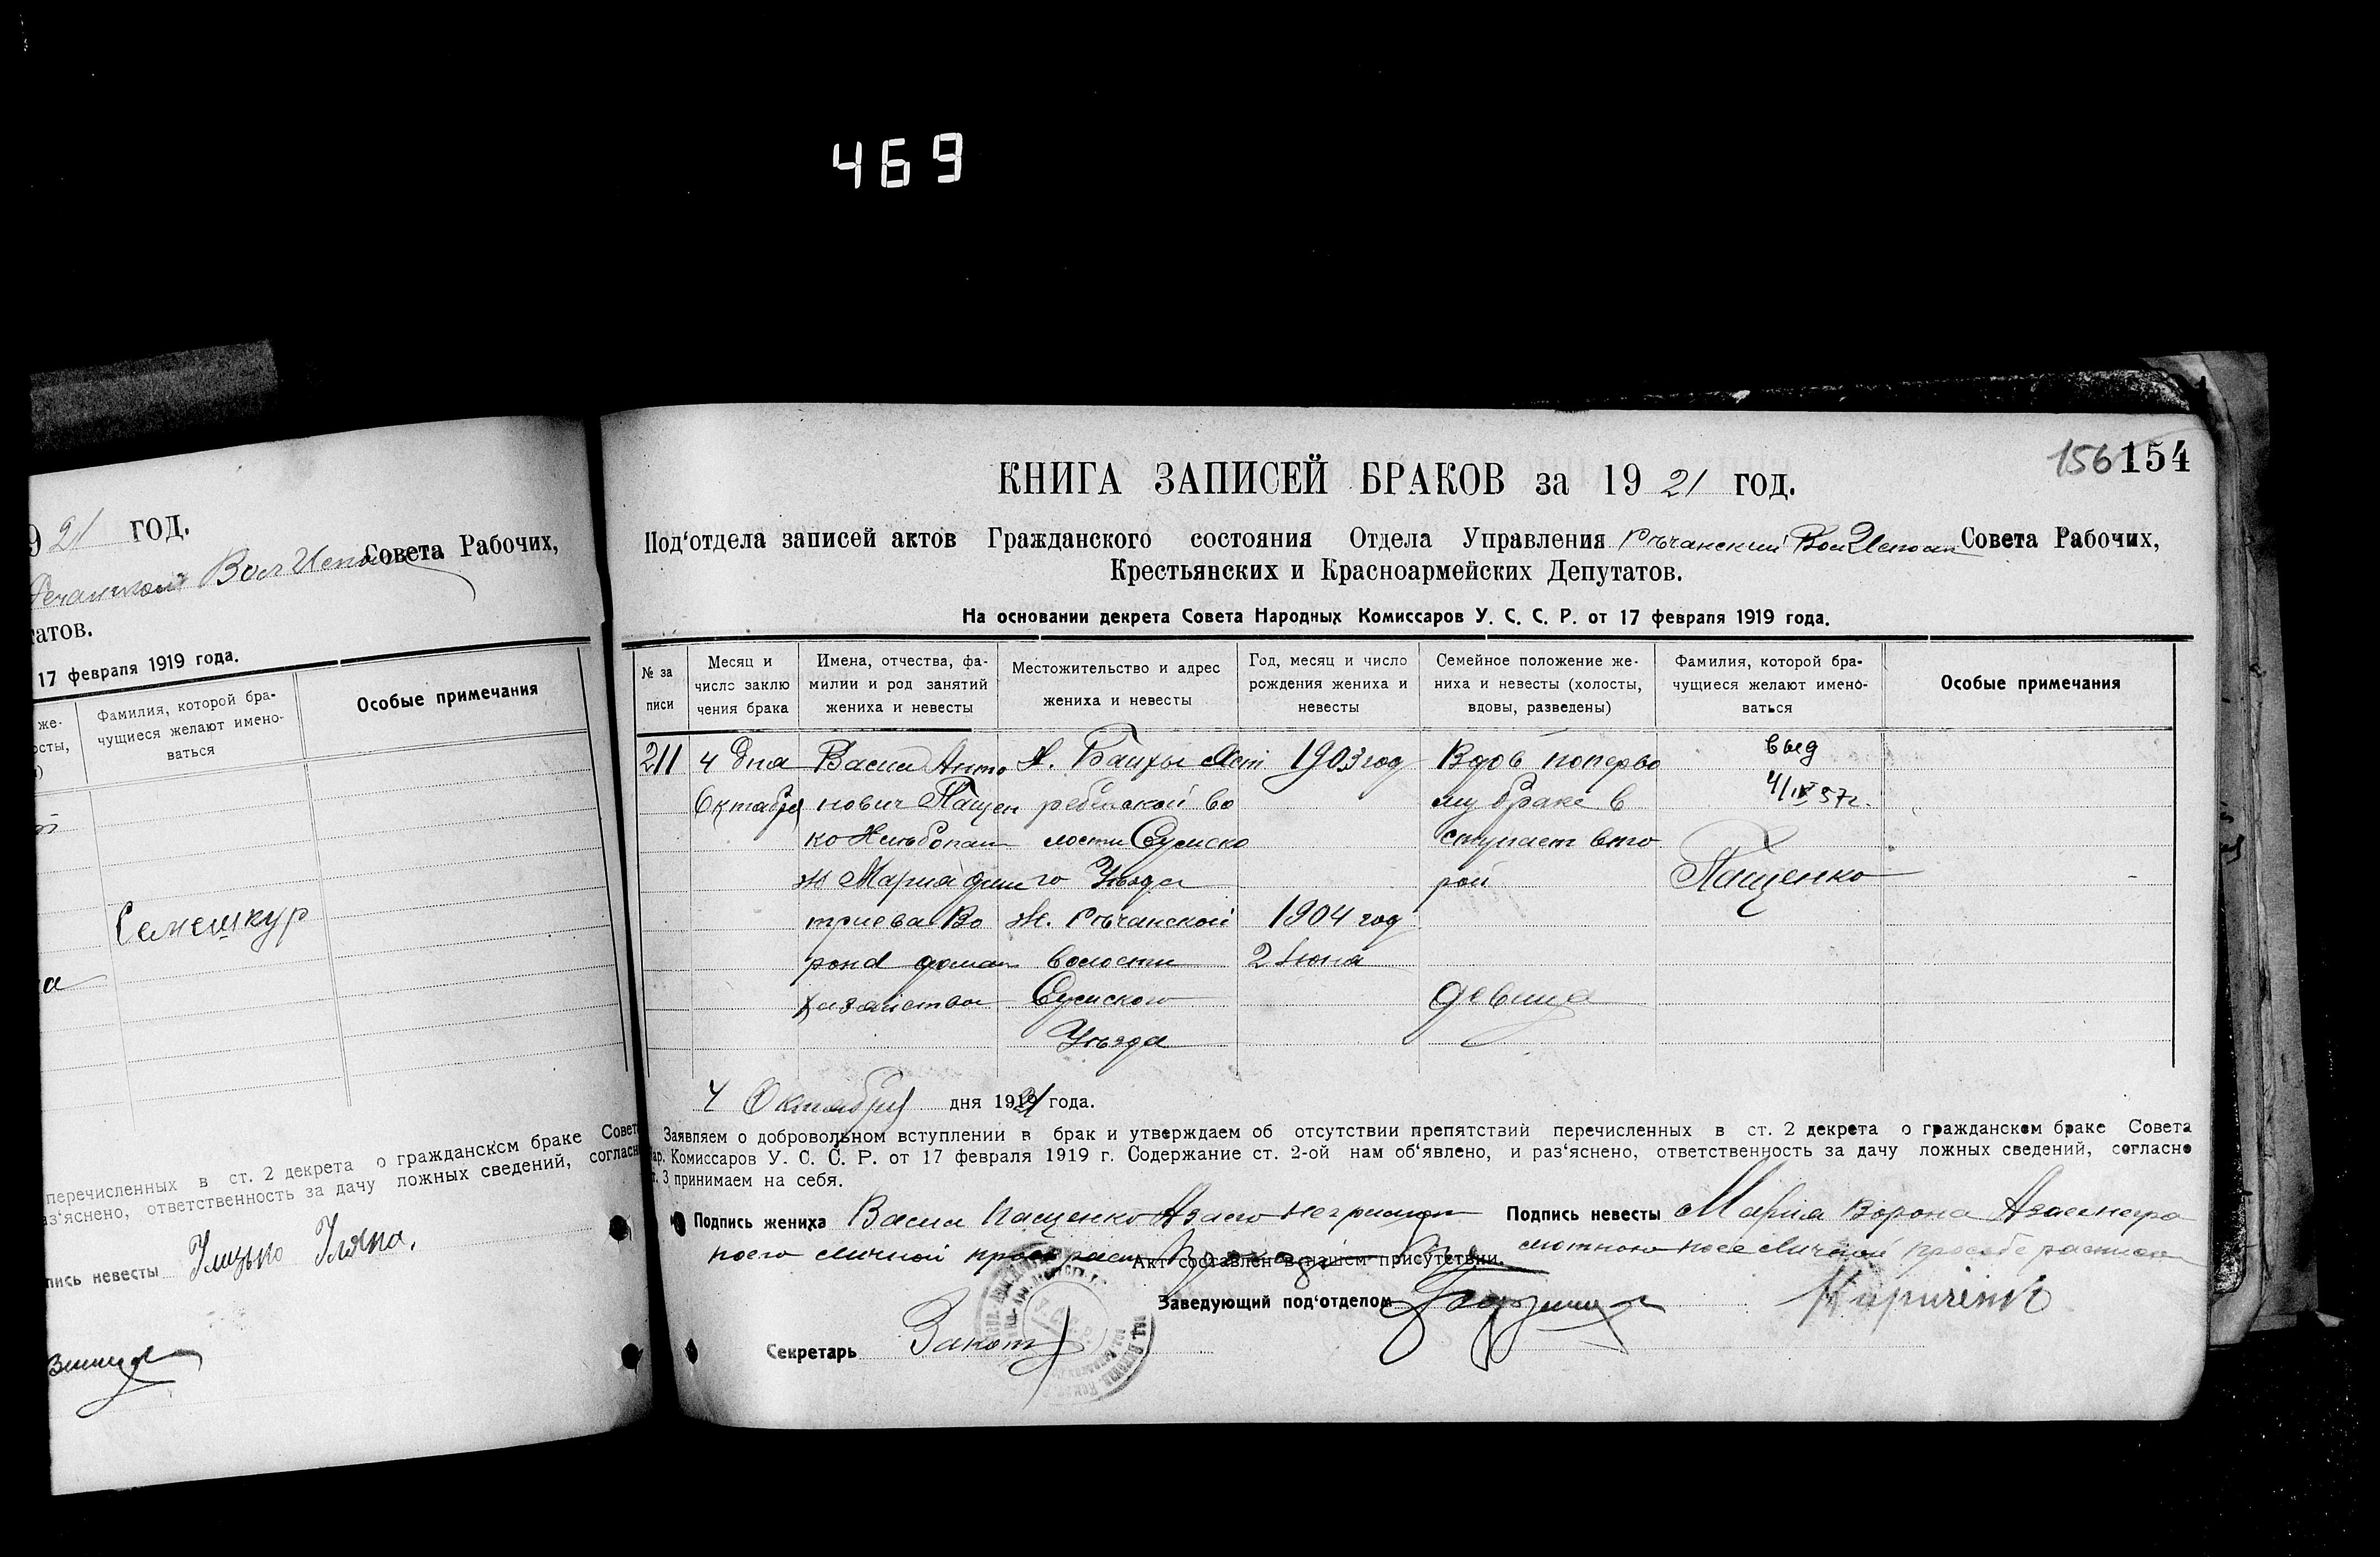 469
9 21 год.
Вол Совета Рабочих,
татов.
17 февраля 1919 года.
же-
осты,
Фамилия, которой бра-
чущиеся желают имено-
ваться
Особые примечания
Семешкур
а
перечисленных в ст. 2 декрета о гражданском браке Совет
аз'яснено, ответственность за дачу ложных сведений, соглас
пись невесты
156 154
КНИГА ЗАПИСЕЙ БРАКОВ за 19 21 год.
Под'отдела записей актов Гражданского состояния Отдела Управления Речанский Совета Рабочих,
Крестьянских и Красноармейских Депутатов.
На основании декрета Совета Народных Комиссаров У. С. С. Р. от 17 февраля 1919 года.
№ за
писи
Месяц и
число заклю
чения брака
Имена, отчества, фа-
милии и род занятий
жениха и невесты
Местожительство и адрес
жениха и невесты
Год, месяц и число
рождения жениха и
невесты
Семейное положение же-
ниха и невесты (холосты,
вдовы, разведены)
Фамилия, которой бра-
чущиеся желают имено-
ваться
Особые примечания
211
4 дня
Октября
Васил Анто
нович Пащен
ко Хлебопаш
Мария Дми
триева Во
рона домаш
хазайства
Х. Банхы Яст
ребенской во
лости Сумско
го Уезда
Ж. Речанской
волости
Сумского
Уезда
1903 год
1904 год
2 Июня
Вдов поперво
му браке в
ступает вто
рой
девица
выд
4/IX 57г.
Пащенко
4 Октября дня 1921 года.
Заявляем о добровольном вступлении в брак и утверждаем об отсутствии препятствий перечисленных в ст. 2 декрета о гражданском браке Совета
ар. Комиссаров У. С. С. Р. от 17 февраля 1919 г. Содержание ст. 2-ой нам об'явлено, и раз'яснено, ответственность за дачу ложных сведений, согласно
т. 3 принимаем на себя.
Подпись жениха Васил Пащенко Азаего
Подпись невесты Мария Ворона
личной
Акт составлен в нашем присутствии.
Заведующий под'отделом
Секретарь